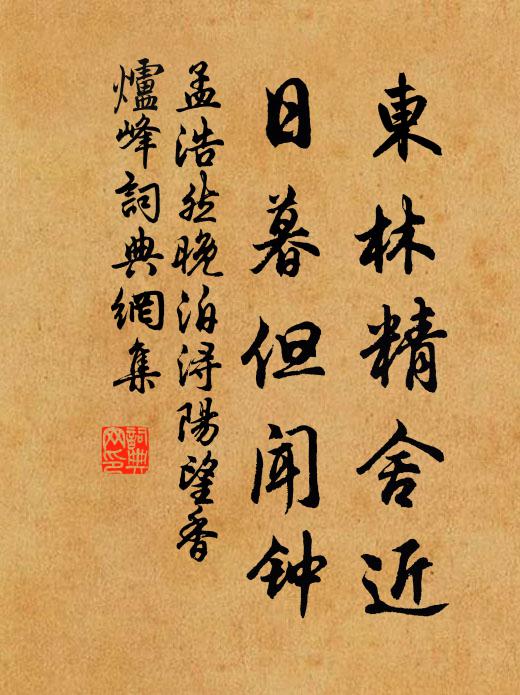 東林精舍近
日暮但闻钟
孟浩然晚泊浔陽望香
爐峰詞典網集
詞典
网印